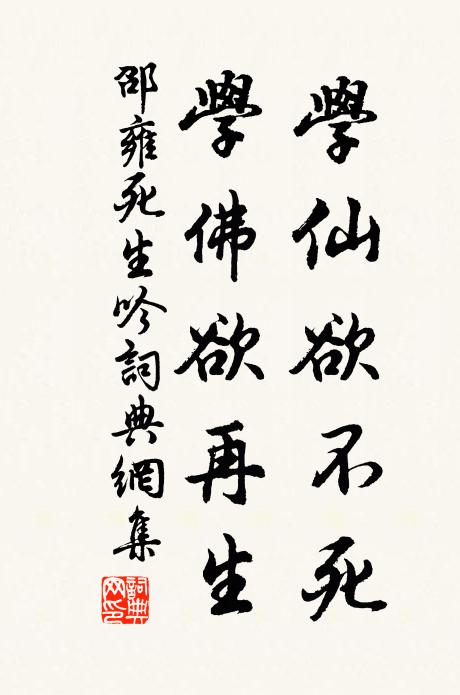 學仙欲不死
學佛欲再生
邵雍死生吟詞典網集
詞典网印